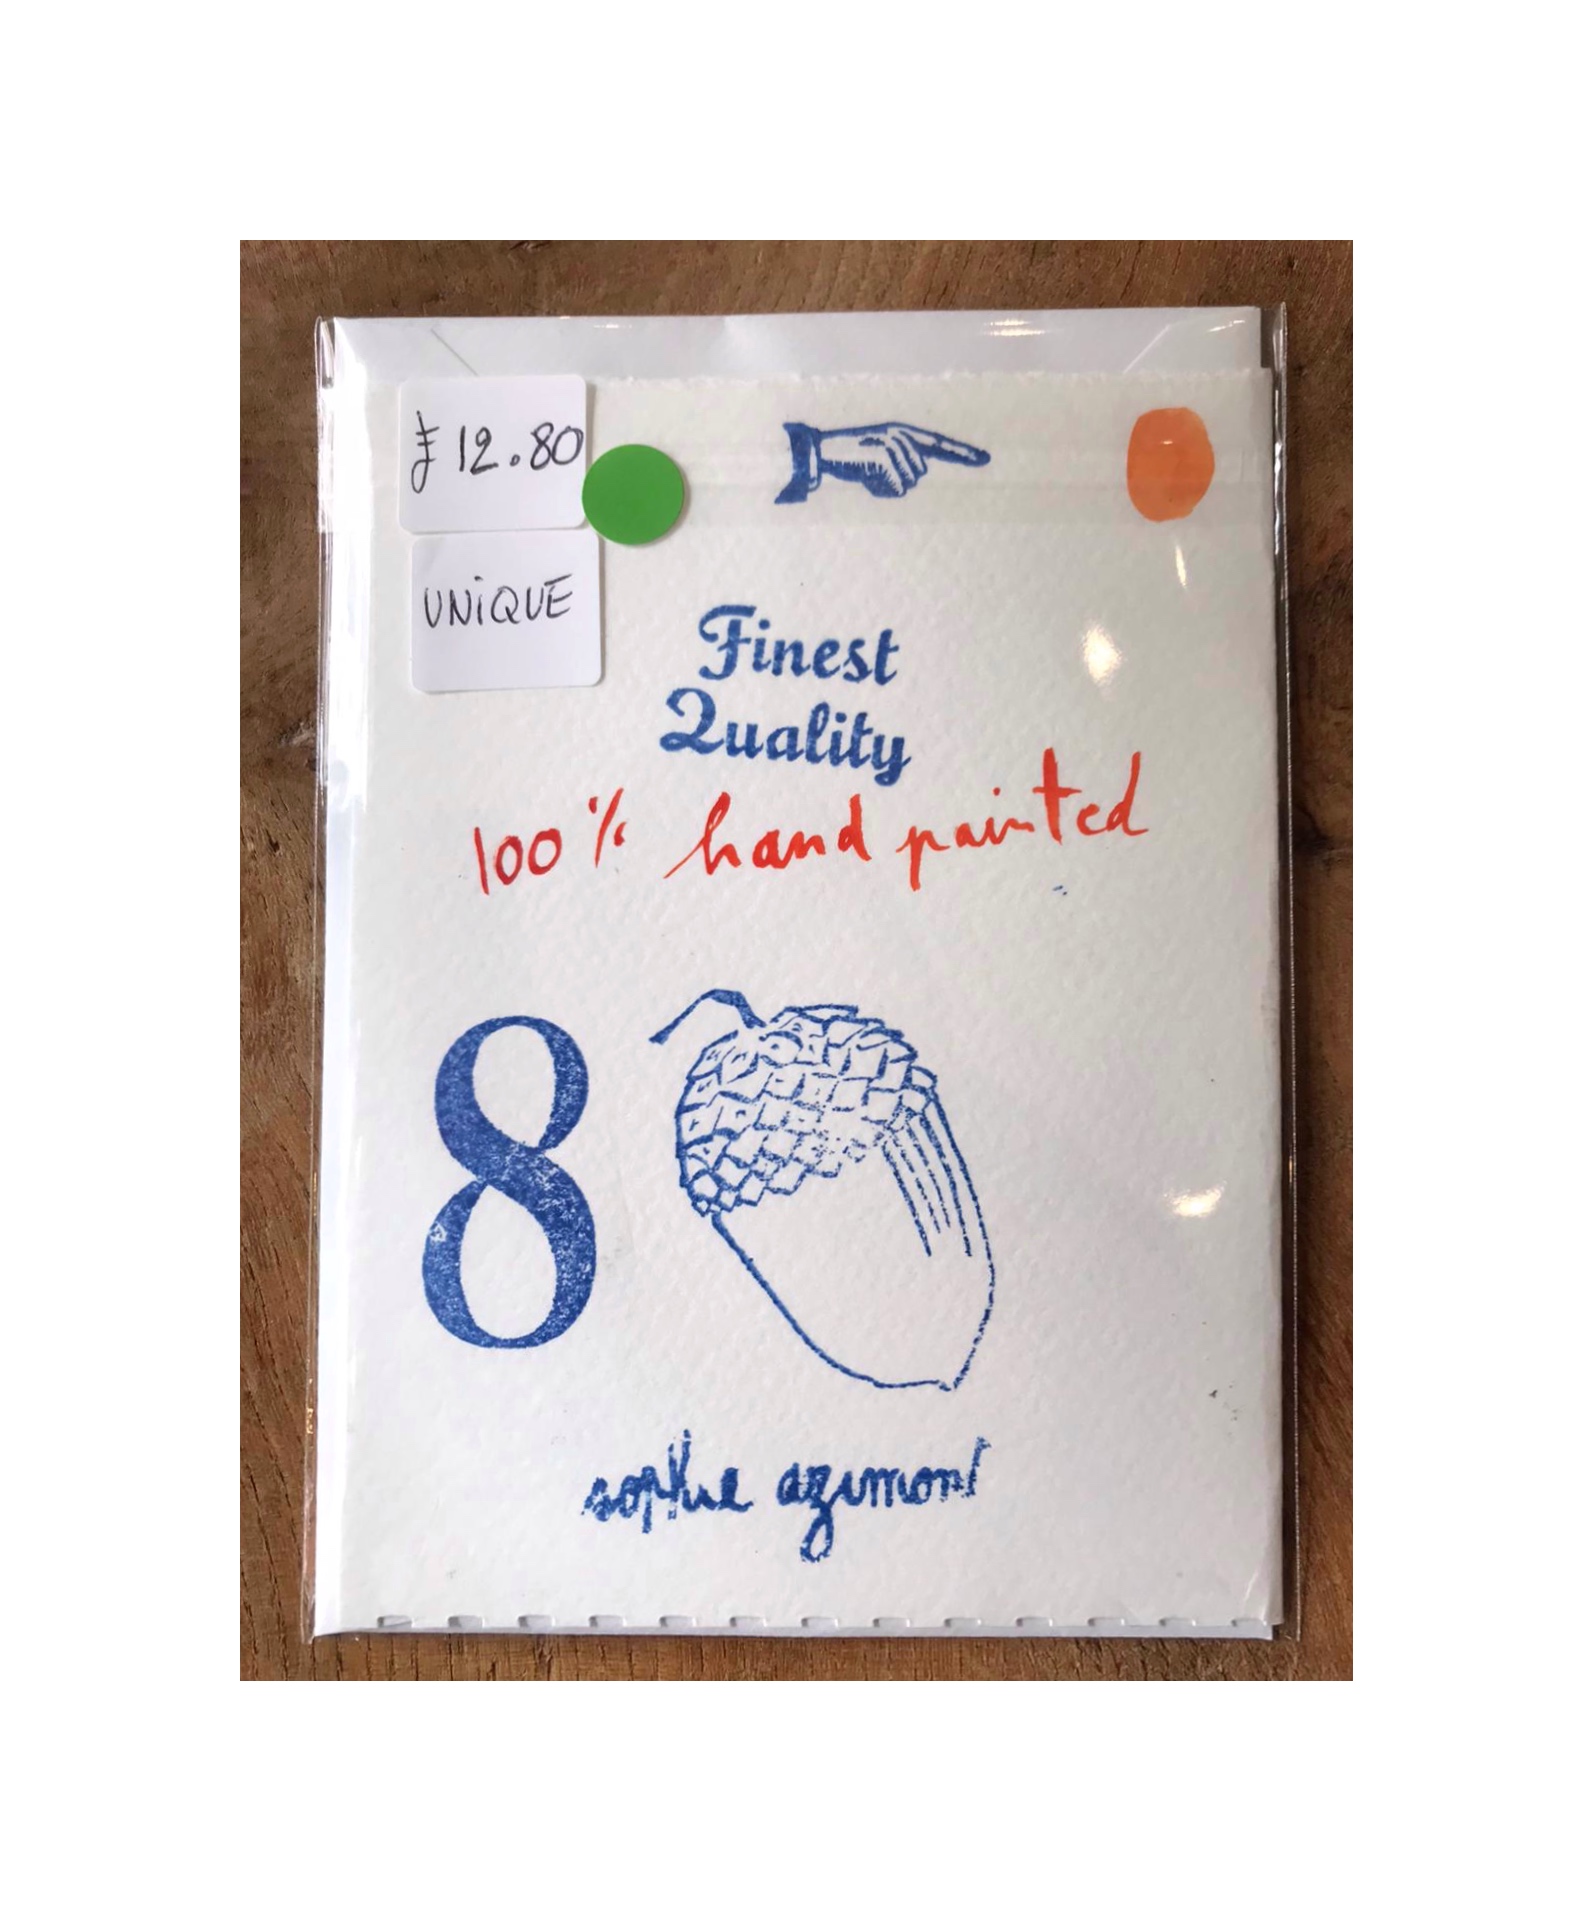 £12.80
UNiQUE
Finest
Quality
100% hand painted
8
sophie azimont